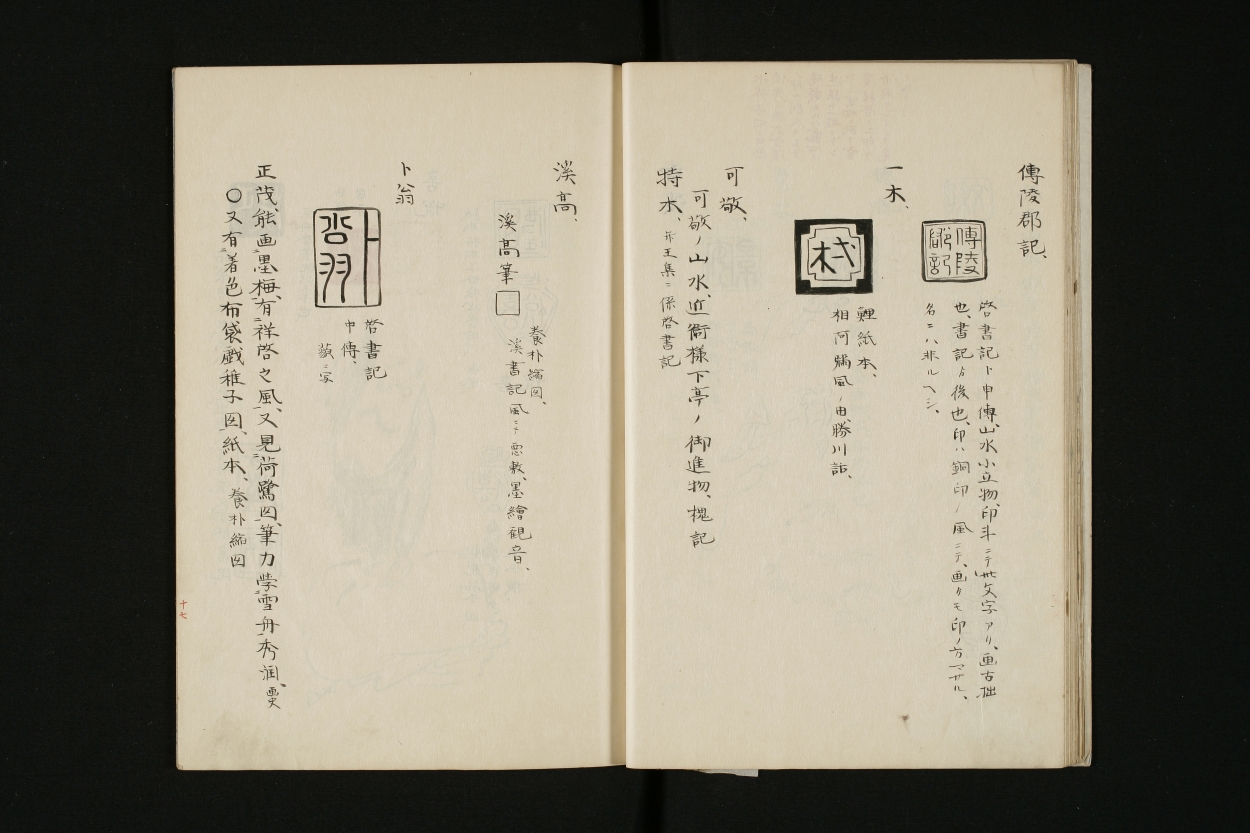 傳陵郡記、
傳陵
郷記
啓書記ト申傳、山水小立物、印斗ニテ此文字アリ、画古拙
也、書記ゟ後也、印ハ銅印ノ風ニテ、画ゟモ印ノ方マサル、
名ニハ非ルヘシ、
一木、
鯉紙本、
相阿彌風ノ由、勝川話、
可敬、
可敬ノ山水、近衛様下亭ノ御進物、槐記
特木、弁玉集ニ係啓書記
溪高、
溪高筆
養朴縮図、
溪書記風ニテ悪敷、墨繪観音、
卜翁
卜翁
啓書記
申傳、
正茂、能画墨梅、有祥啓之風、又見荷鷺図、筆力学雪舟秀潤、畫史
○又有着色布袋戯稚子図、紙本、養朴縮図
十七